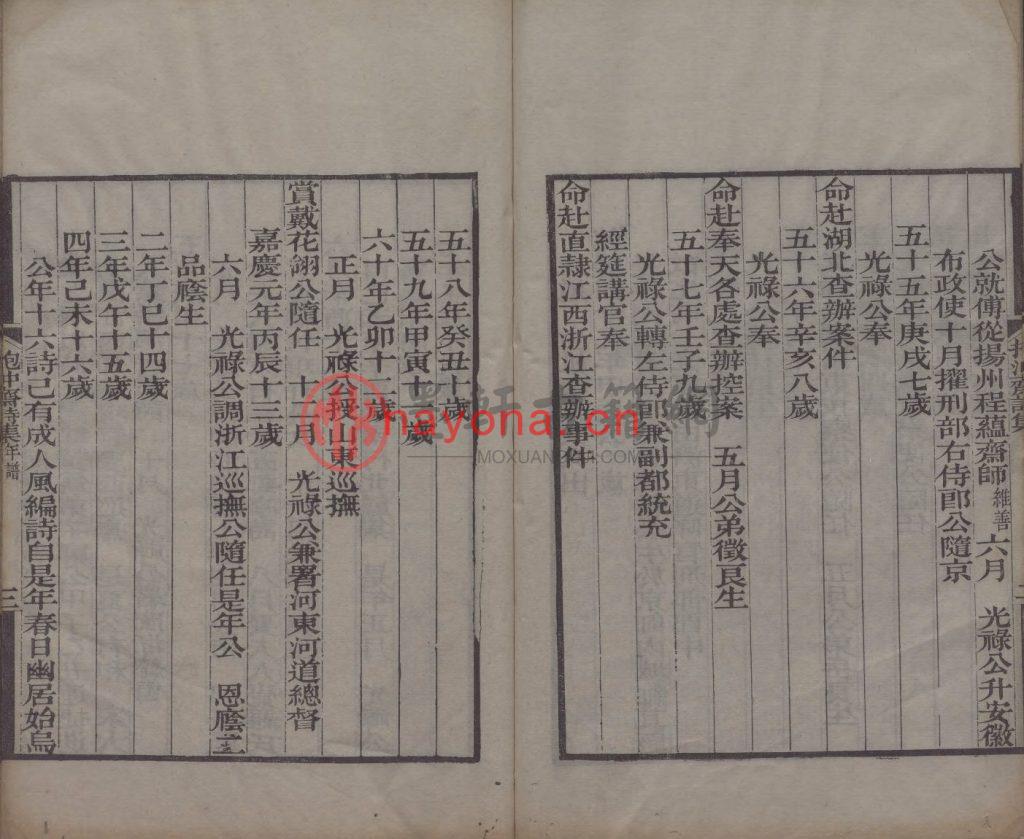 公就傅從揚州程蘊齋師維善六月　光祿公升安徽
布政使十月擢刑部右侍郎公隨京
五十五年庚戌七歲
光祿公奉
命赴湖北查辦案件
五十六年辛亥八歲
光祿公奉
命赴奉天各處查辦控案　五月公弟徵良生
五十七年壬子九歲
光祿公轉左侍郎兼副都統充
經筵講官奉
命赴直隸江西浙江查辦事件
五十八年癸丑十歲
五十九年甲寅十一歲
六十年乙卯十二歲
正月　光祿公授山東巡撫
賞戴花翎公隨任　十二月　光祿公兼署河東河道總督
嘉慶元年丙辰十三歲
六月　光祿公調浙江巡撫公隨任是年公　恩廕
品廕生
二年丁巳十四歲
三年戊午十五歲
四年己未十六歲
公年十六詩已有成人風編詩自是年春日幽居始烏
抱沖齋詩集年譜
三
墨軒古籍網
nayona.cn